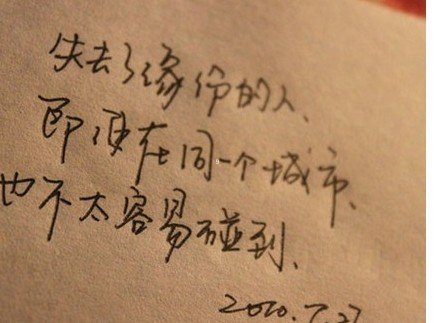 失去了缘份的人、
即便在同一个城市、
也不太容易碰到、
2010.7.27